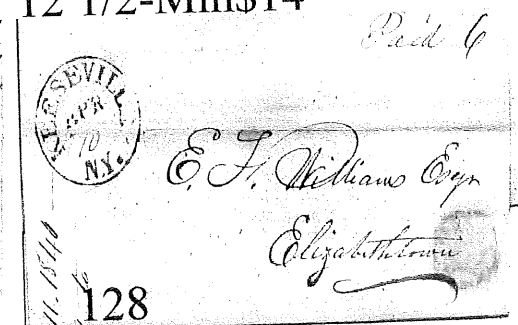 12 1/2-Min$14
Paid 6
KEESEVILL
APR
10
N.Y.
E. F. Williams Esqr
Elizabethtown
1840
128